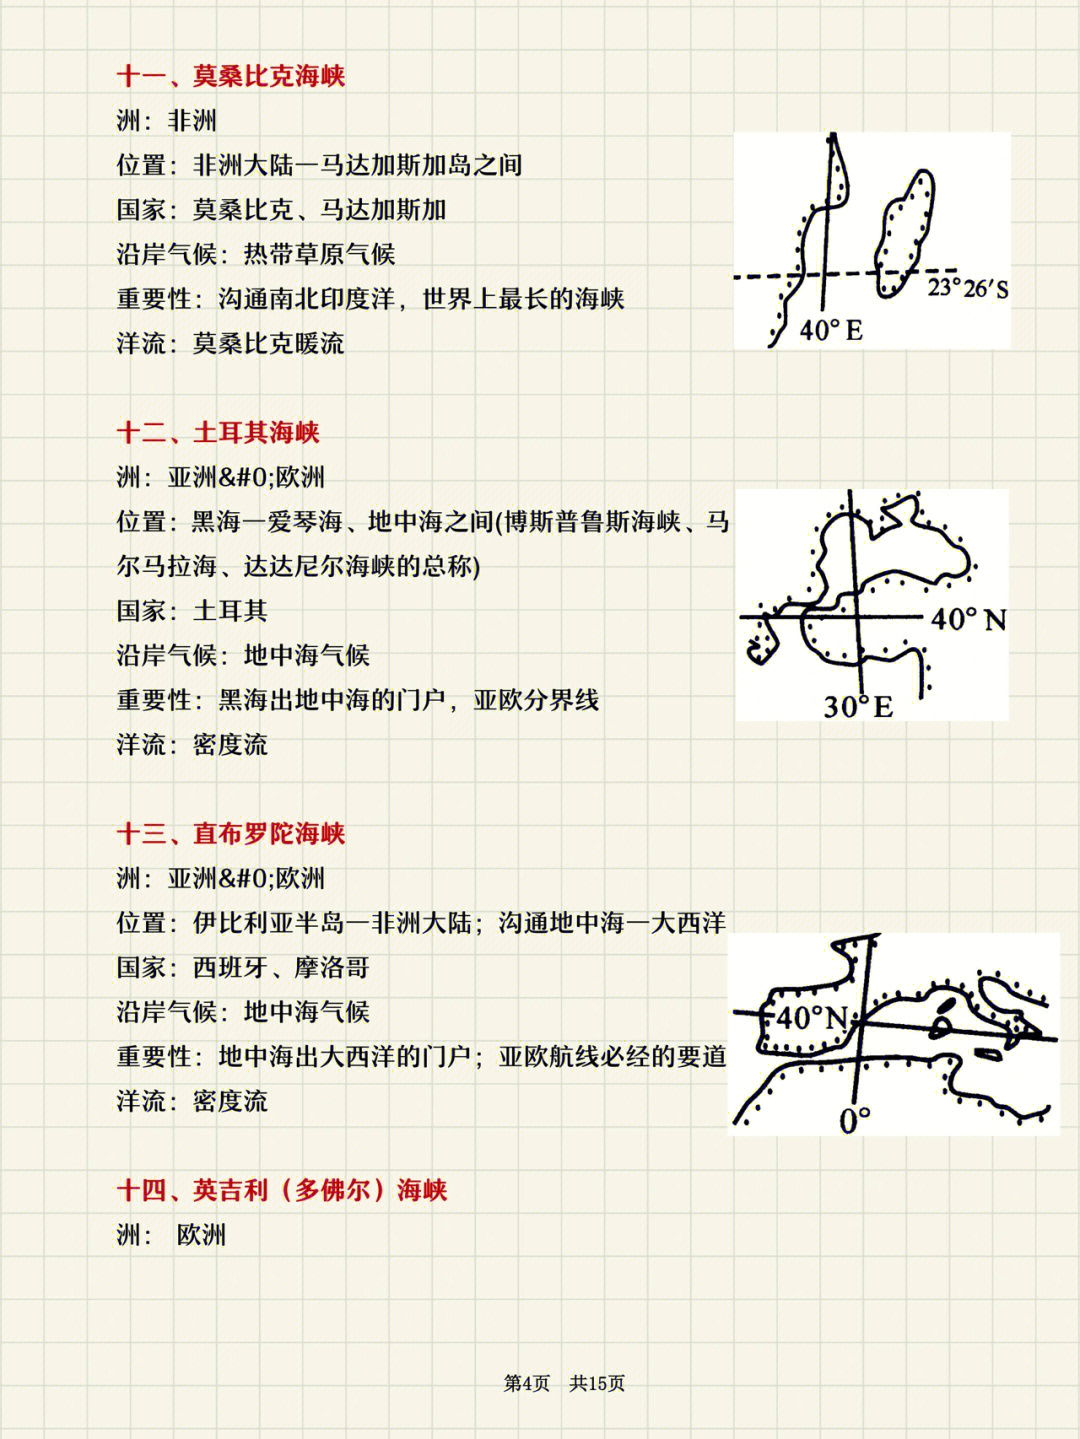 十一、莫桑比克海峡
洲：非洲
位置：非洲大陆—马达加斯加岛之间
国家：莫桑比克、马达加斯加
沿岸气候：热带草原气候
重要性：沟通南北印度洋，世界上最长的海峡
洋流：莫桑比克暖流
23°26′S
40°E
十二、土耳其海峡
洲：亚洲&#0;欧洲
位置：黑海—爱琴海、地中海之间(博斯普鲁斯海峡、马
尔马拉海、达达尼尔海峡的总称)
国家：土耳其
沿岸气候：地中海气候
重要性：黑海出地中海的门户，亚欧分界线
洋流：密度流
40°N
30°E
十三、直布罗陀海峡
洲：亚洲&#0;欧洲
位置：伊比利亚半岛—非洲大陆；沟通地中海—大西洋
国家：西班牙、摩洛哥
沿岸气候：地中海气候
重要性：地中海出大西洋的门户；亚欧航线必经的要道
洋流：密度流
40°N
0°
十四、英吉利（多佛尔）海峡
洲： 欧洲
第4页 共15页